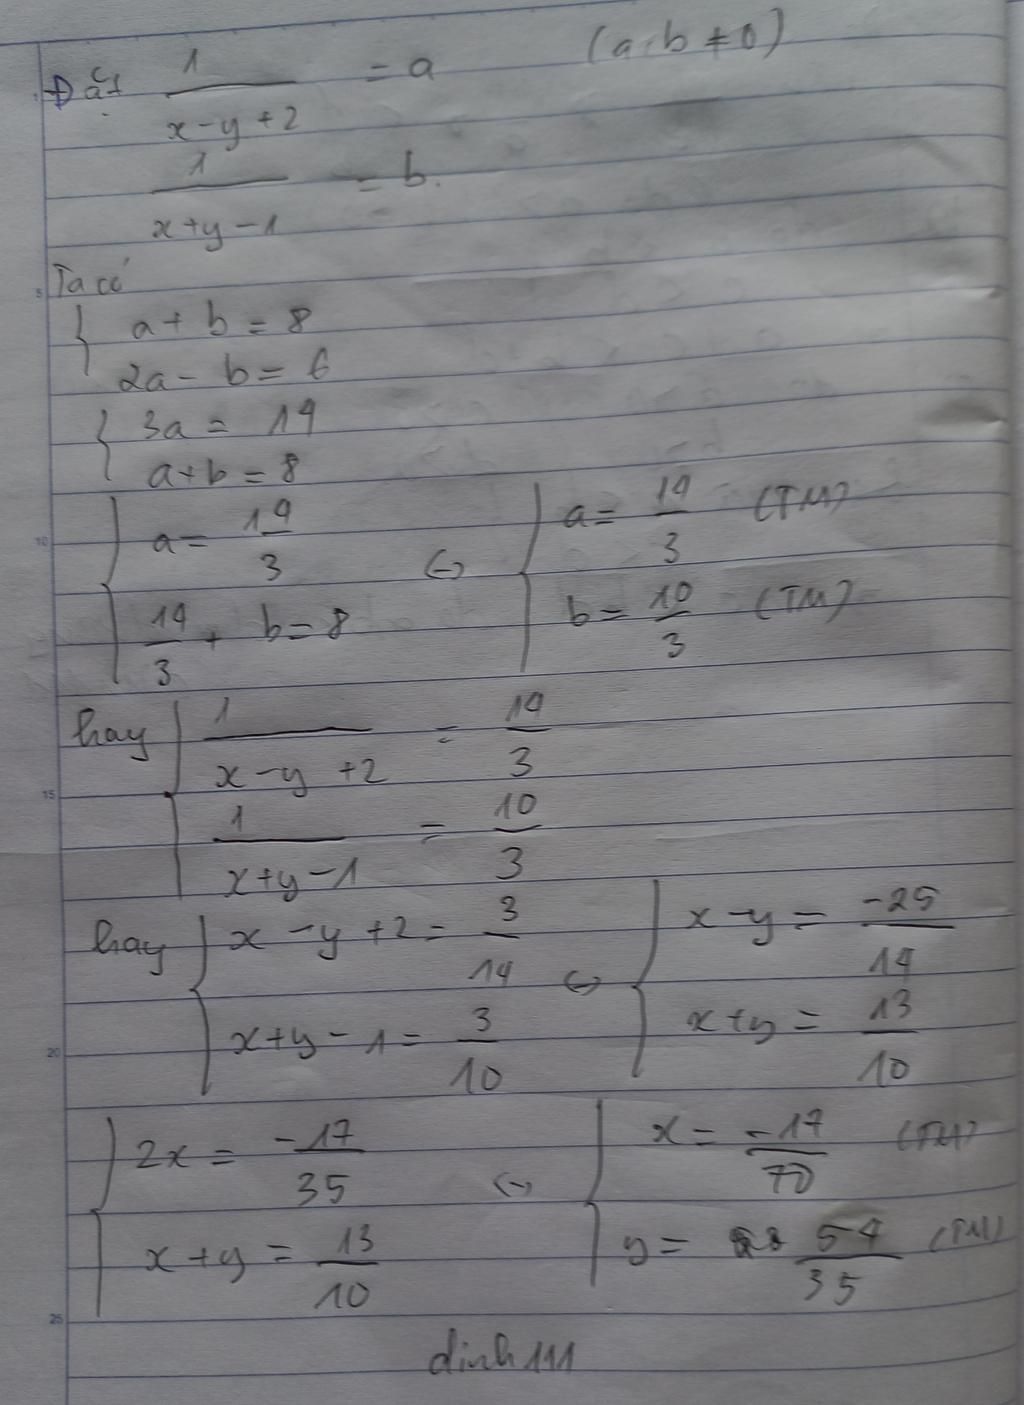 Đặt 1/(x-y+2) = a (a, b ≠ 0)
1/(x+y-1) = b.
Ta có
{ a + b = 8
2a - b = 6
{ 3a = 14
a+b = 8
{ a = 14/3 <-> { a = 14/3 (TM)
14/3 + b = 8 b = 10/3 (TM)
hay { 1/(x-y+2) = 14/3
1/(x+y-1) = 10/3
hay { x-y+2 = 3/14 <-> { x-y = -25/14
x+y-1 = 3/10 x+y = 13/10
{ 2x = -17/35 <-> { x = -17/70 (TM)
x+y = 13/10 y = 54/35 (TM)
dinh111